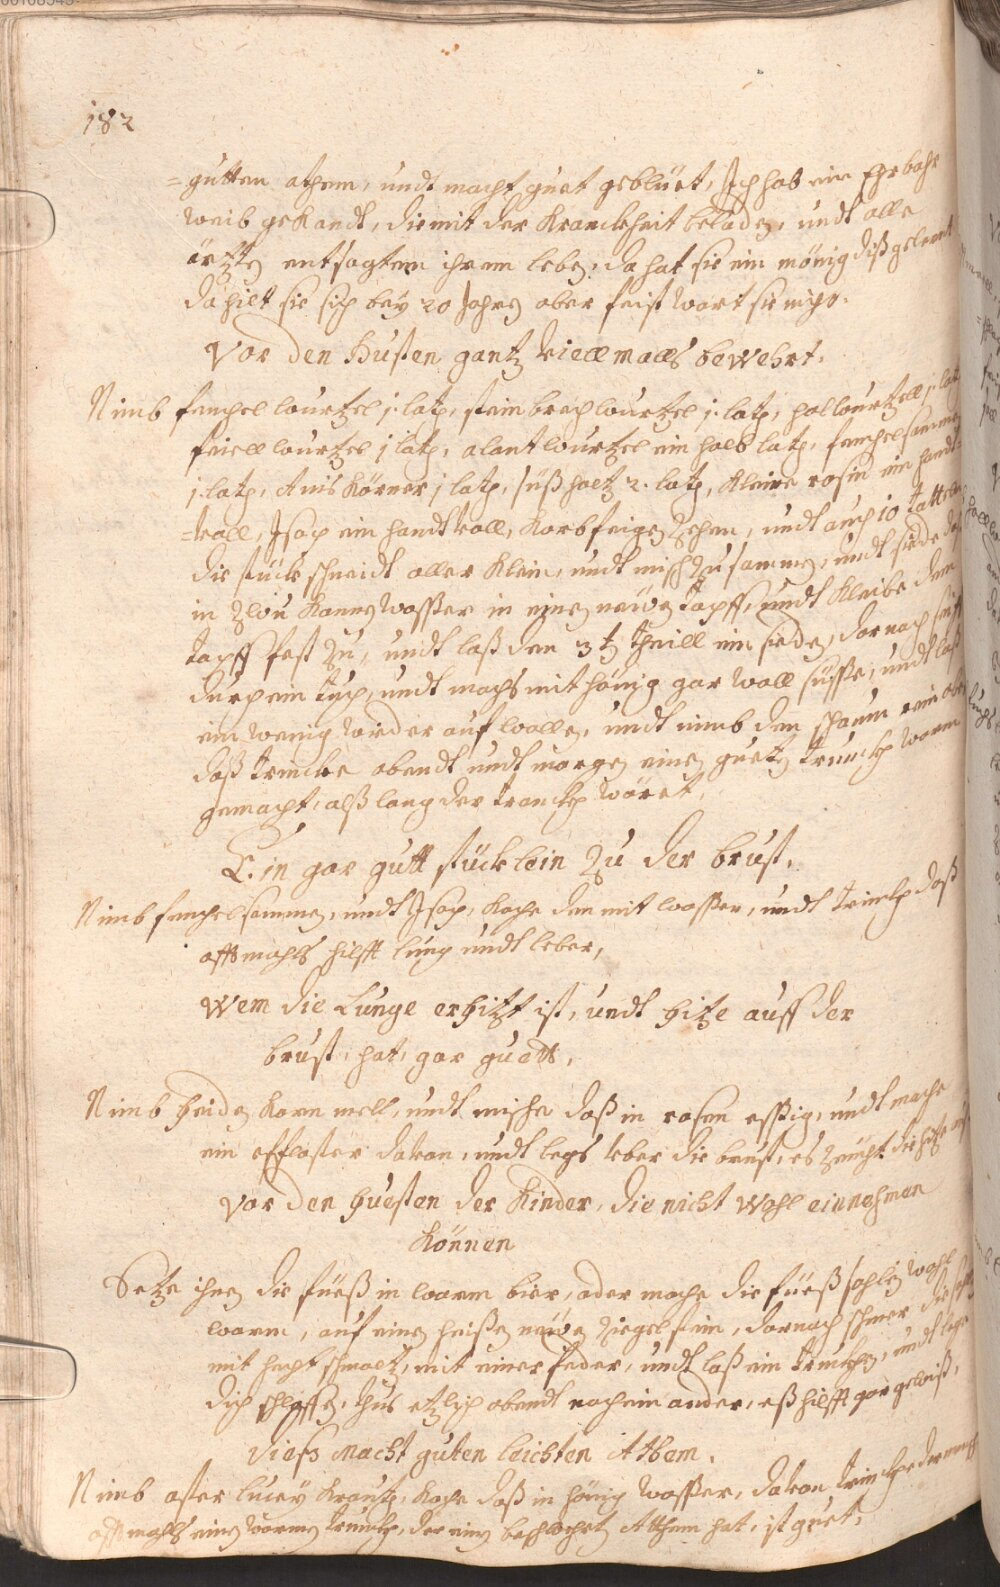 182
=gutten athem, undt macht guet geblüet, Ich hab ein Ehrbahr
weib gekandt, die mit der Kranckheit beladen, undt alle
ärtzte entsagtem ihrem leben, da hat sie ein mönig diß gelernt
da hilt sie sich bey 20 Jahren aber feist wart sie nige.
Vor den Husten gantz viellmalls bewehrt.
Nimb fenchel wurtzel j. lath, steinbrech wurtzel j. lath, hal wurtzell j. lath
feiell wurtzel j lath, alant wurtzel ein halb lath, fenchel sammen
j. lath, Anis Körner j lath, süßholtz 2. lath, Kleine rosin ein handt=
=voll, Isop ein handt voll, Korbfeigen Zehen, undt auch 10 tattelen
die stück schneidt aller klein, undt misch zu samen, undt siede daß
in zwu Kannen wasser in einen neuen topff, undt kleibe den
topff fest zu, undt laß den 3t theill ein sieden, darnach seih
durch ein tuch, undt machs mit hönig gar woll süsse, undt laß
ein wenig wieder auf wallen, undt nimb den schaum rein abe
daß trincke abendt undt morgen einen gueten trunckh warm
gemacht, alß lang der tranckh wäret.
Ein gar gutt stücklein Zu der brust.
Nimb fenchelsammen, undt Isop, Koche den mit wasser, undt trinckh daß
offtmahls hilfft lung undt leber,
Wem die Lunge erhitzt ist, undt hitze auff der
brust hat, gar guett.
Nimb heiden Korn mell, undt mische daß in rosen essig, undt mache
ein efflaster davon, undt legs uber die brust, es zeucht die hitze
Vor den huesten der Kinder, die nicht Wohl einnehmen
Können
Setze ihnen die füeß in warm bier, oder mache die füeß sohlen wohl
warm, auf einen heißen neuen Ziegelstein, darnach schmer die
mit hecht schmaltz, mit einer feder, undt laß ein trucknen, undt lege
dich schlaffen, thus etzlich abendt nach einander, eß hilfft gar gewiß,
Dieß Macht guten leichten Athem.
Nimb oster lucey Krautth, Koche daß in hönig wasser, davon trinckhe
offtmahls einen warmen trunckh, der einen beschwerten Atthem hat, ist guet.